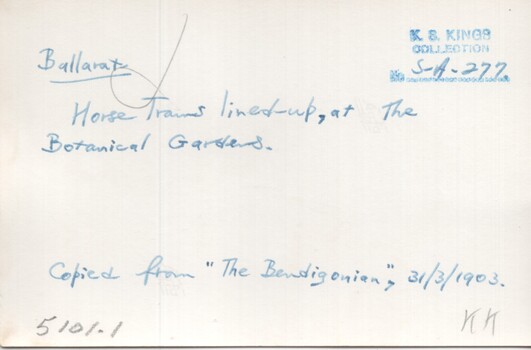 K. S. KINGS
COLLECTION
No S-A-277
Ballarat
Horse Trams lined-up, at the
Botanical Gardens.
Copied from "The Bendigonian", 31/3/1903.
5101.1
KK